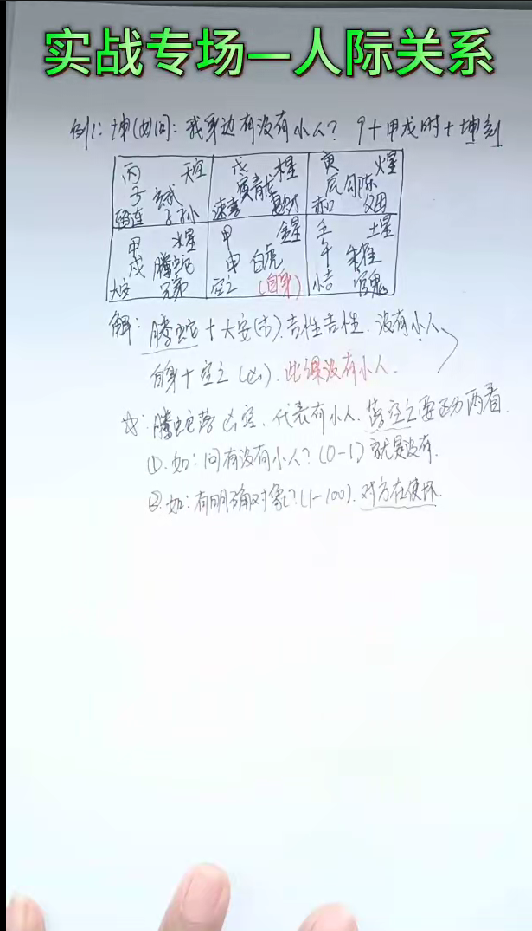 实战专场—人际关系
例1：坤(女)问：我身边有没有小人？ 9+甲戌时+坤刻
丙 天空 戊 木星 庚 火星
子 玄武 寅 青龙 辰 勾陈
留连 子孙 速喜 赤口 父母
甲 水星 甲 金星 壬 土星
戌 腾蛇 申 白虎 午 朱雀
大安 兄弟 空亡 (自身) 小吉 官鬼
解：腾蛇+大安(吉).吉性吉性.没有小人.
自身+空亡(凶).此课没有小人.
腾蛇落凶宫.代表有小人.落空亡要分两看.
①.如：问有没有小人？(0-1)就是没有.
②.如：有明确对象？(1-100).对方在使坏.